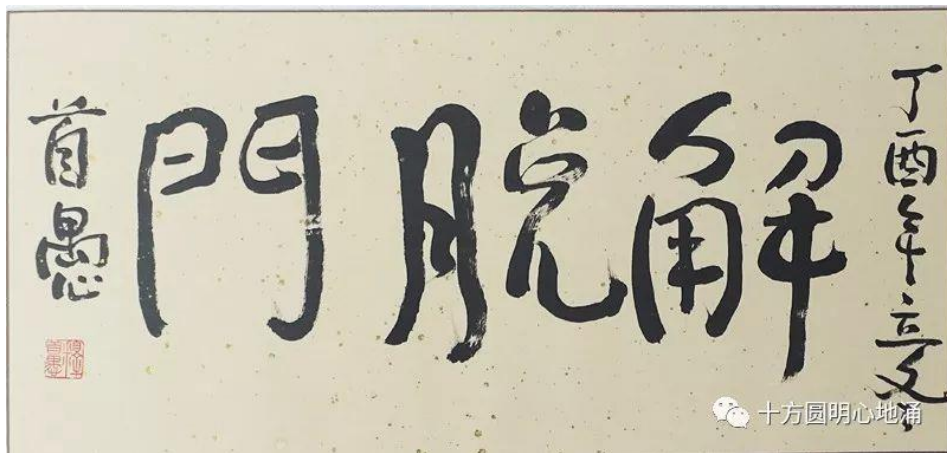 丁酉年立冬
解脱門
首愚
十方圆明心地涌